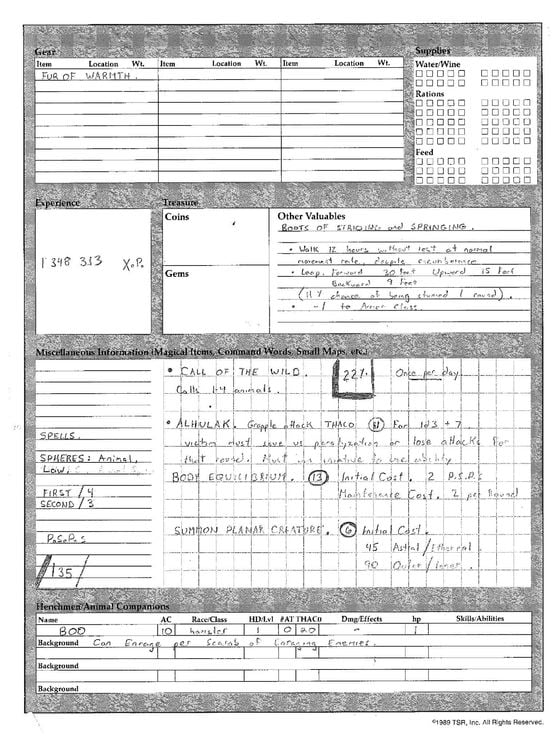 Gear
Supplies
Item Location Wt. Item Location Wt. Item Location Wt.
FUR OF WARMTH.
Water/Wine
Rations
Feed
Experience
Treasure
1 348 313 X.P.
Coins
Gems
Other Valuables
BOOTS OF STRIDING and SPRINGING.
• Walk 12 hours without rest at normal
movement rate, despite circumstance
• Leap. Forward 30 feet Upward 15 feet
Backward 9 feet
chance of being stunned 1 round).
• -1 to Armor Class.
Miscellaneous Information (Magical Items, Command Words, Small Maps, etc.)
• CALL OF THE WILD. 22%. Once per day
Calls 1-4 animals.
• ALHULAK. Grapple attack THACO For 1d3 + 7.
victim must save vs paralyzation or lose attacks for
that round. Must win initiative to use ability
BODY EQUILIBRIUM. (13) Initial Cost. 2 P.S.P.s
Maintenance Cost. 2 per Round
SUMMON PLANAR CREATURE. (6) Initial Cost.
45 Astral/Ethereal
90 Outer/Inner.
SPELLS.
SPHERES: Animal,
Law,
FIRST / 4
SECOND / 3
P.S.P.s
/135/
Henchmen/Animal Companions
Name AC Race/Class HD/Lvl #AT THAC0 Dmg/Effects hp Skills/Abilities
BOO 10 hamster 1 0 20 - 1
Background Can Enrage per Scarab of Enraging Enemies.
Background
Background
©1989 TSR, Inc. All Rights Reserved.